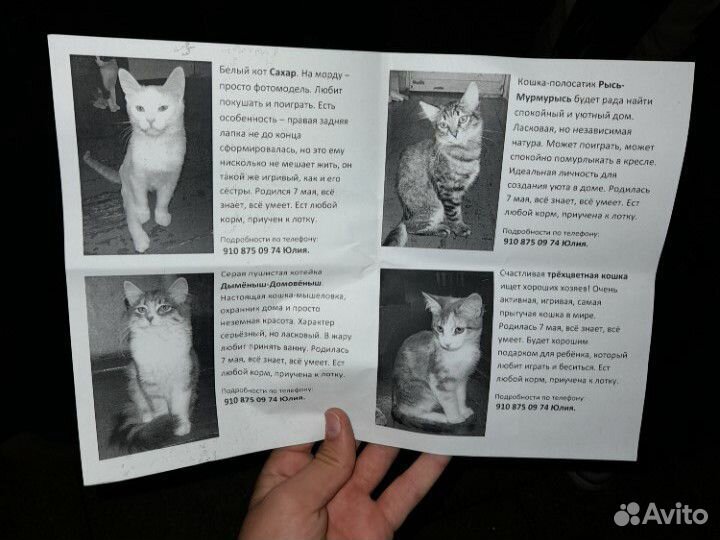 Белый кот Сахар. На морду –
просто фотомодель. Любит
покушать и поиграть. Есть
особенность – правая задняя
лапка не до конца
сформировалась, но это ему
нисколько не мешает жить, он
такой же игривый, как и его
сёстры. Родился 7 мая, всё
знает, всё умеет. Ест любой
корм, приучен к лотку.
Подробности по телефону:
910 875 09 74 Юлия.
Серая пушистая котейка
Дымёныш-Домовёныш.
Настоящая кошка-мышеловка,
охранник дома и просто
неземная красота. Характер
серьёзный, но ласковый. В жару
любит принять ванну. Родилась
7 мая, всё знает, всё умеет. Ест
любой корм, приучена к лотку.
Подробности по телефону:
910 875 09 74 Юлия.
Кошка-полосатик Рысь-
Мурмурысь будет рада найти
спокойный и уютный дом.
Ласковая, но независимая
натура. Может поиграть, может
спокойно помурлыкать в кресле.
Идеальная личность для
создания уюта в доме. Родилась
7 мая, всё знает, всё умеет. Ест
любой корм, приучена к лотку.
Подробности по телефону:
910 875 09 74 Юлия.
Счастливая трёхцветная кошка
ищет хороших хозяев! Очень
активная, игривая, самая
прыгучая кошка в мире.
Родилась 7 мая, всё знает, всё
умеет. Будет хорошим
подарком для ребёнка, который
любит играть и беситься. Ест
любой корм, приучена к лотку.
Подробности по телефону:
910 875 09 74 Юлия.
Avito